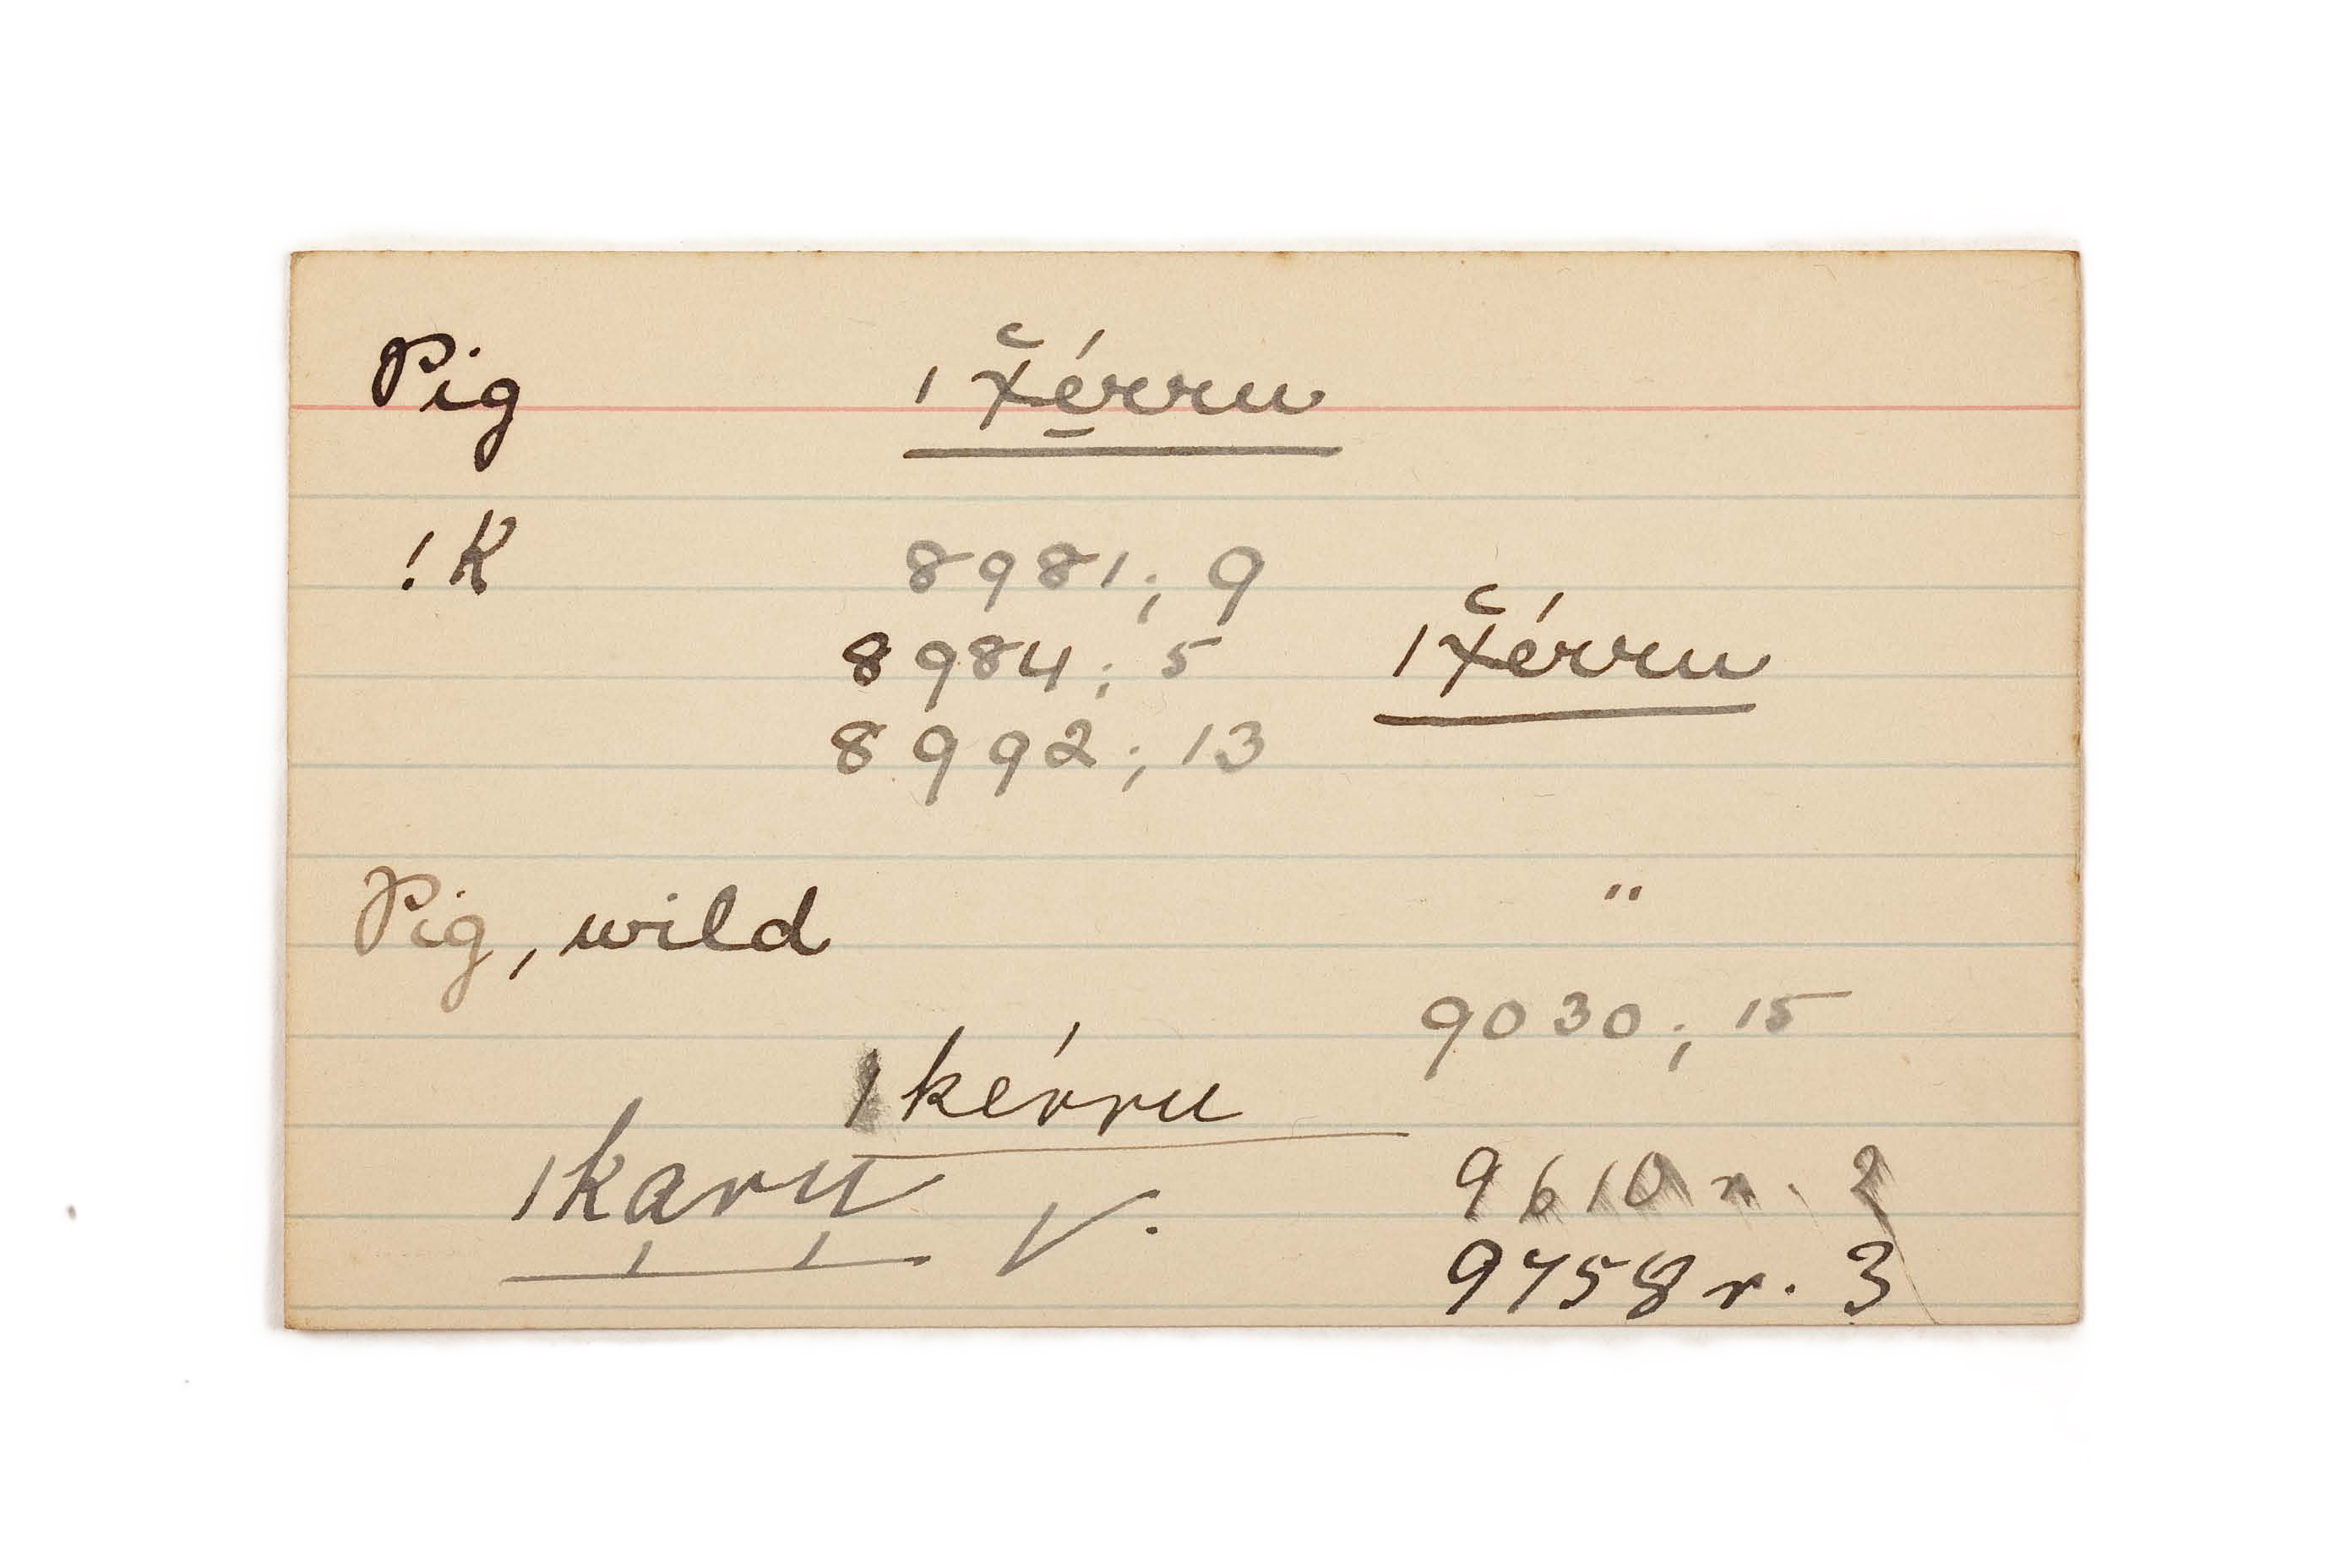 Pig ǀχ̆érru
!K 8981; 9
8984; 5 ǀχ̆érru
8992; 13
Pig, wild "
9030; 15
ǀkérru
ǀkaru V. 9610 r. 2
9758 r. 3